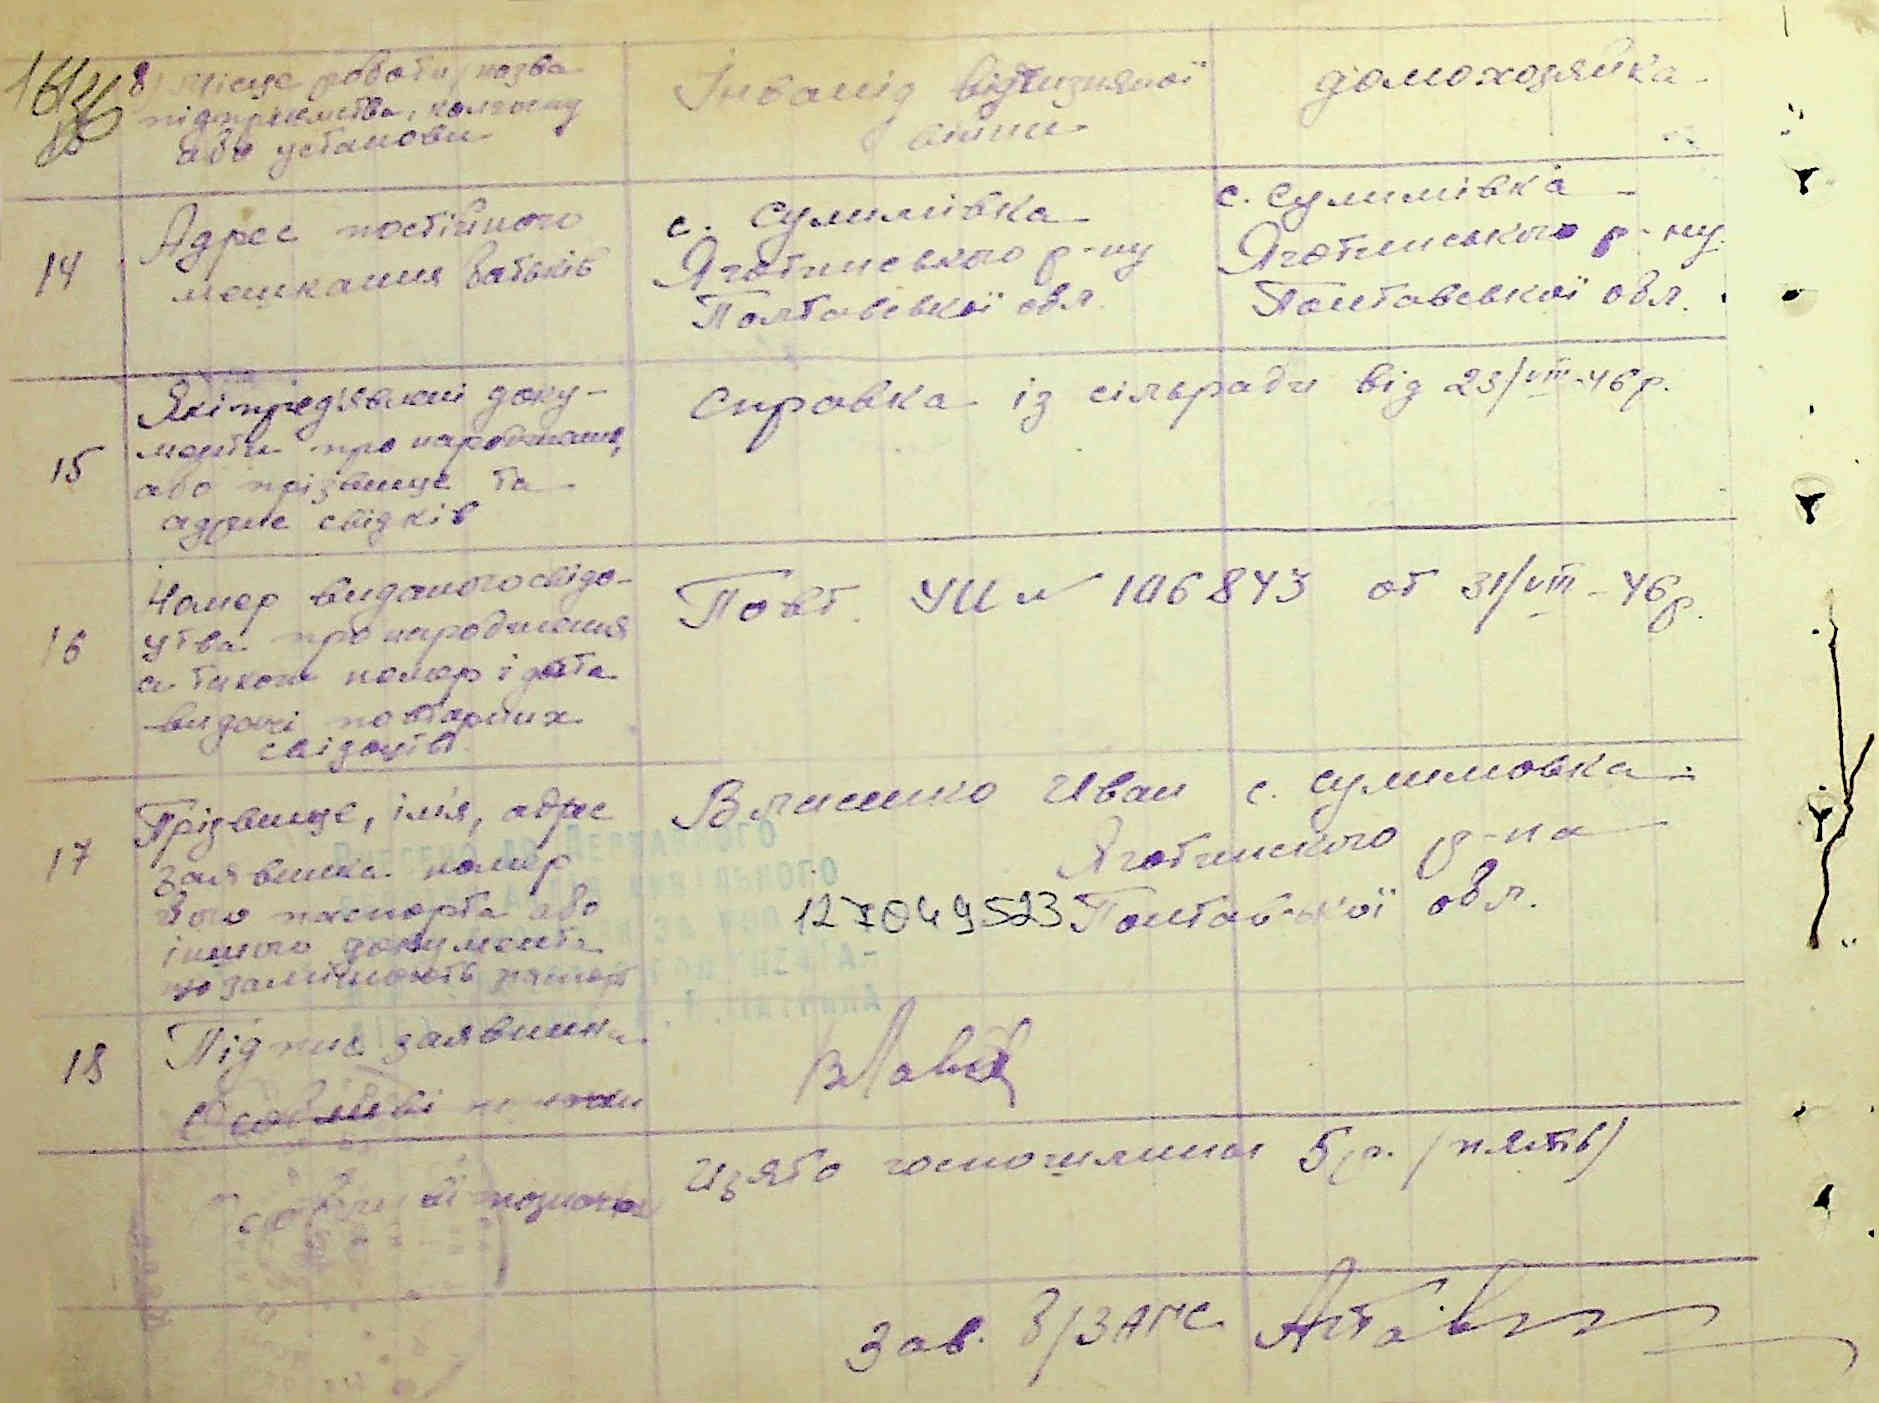 Місце роботи, назва
підприємства, колгоспу
або установи
Інвалід вітчизняної
війни
домохозяйка
14
Адрес постійного
мешкання батьків
с. Сулимівка
Яготинського р-ну
Полтавської обл.
с. Сулимівка
Яготинського р-ну
Полтавської обл.
15
Які пред'явлені доку-
менти про народження,
або прізвище та
адрис свідків
Справка із сільради від 23/VIII-46 р.
16
Номер виданого свідо-
утва про народження
а також номер і дата
видачі повтарних
свідоцтв
Повт. УЦ № 106843 от 31/VIII-46 р.
17
Прізвище, ім'я, адрес
заявника номер
його паспорта або
іншого документа
що заміняють паспорт
Власенко Иван с. Сулимовка
Яготинского р-на
127049523 Полтавської обл.
18
Підпис заявника
Взято госпошлины 5 р. (пять)
Особливі позначки
Зав. Б/ЗАГС